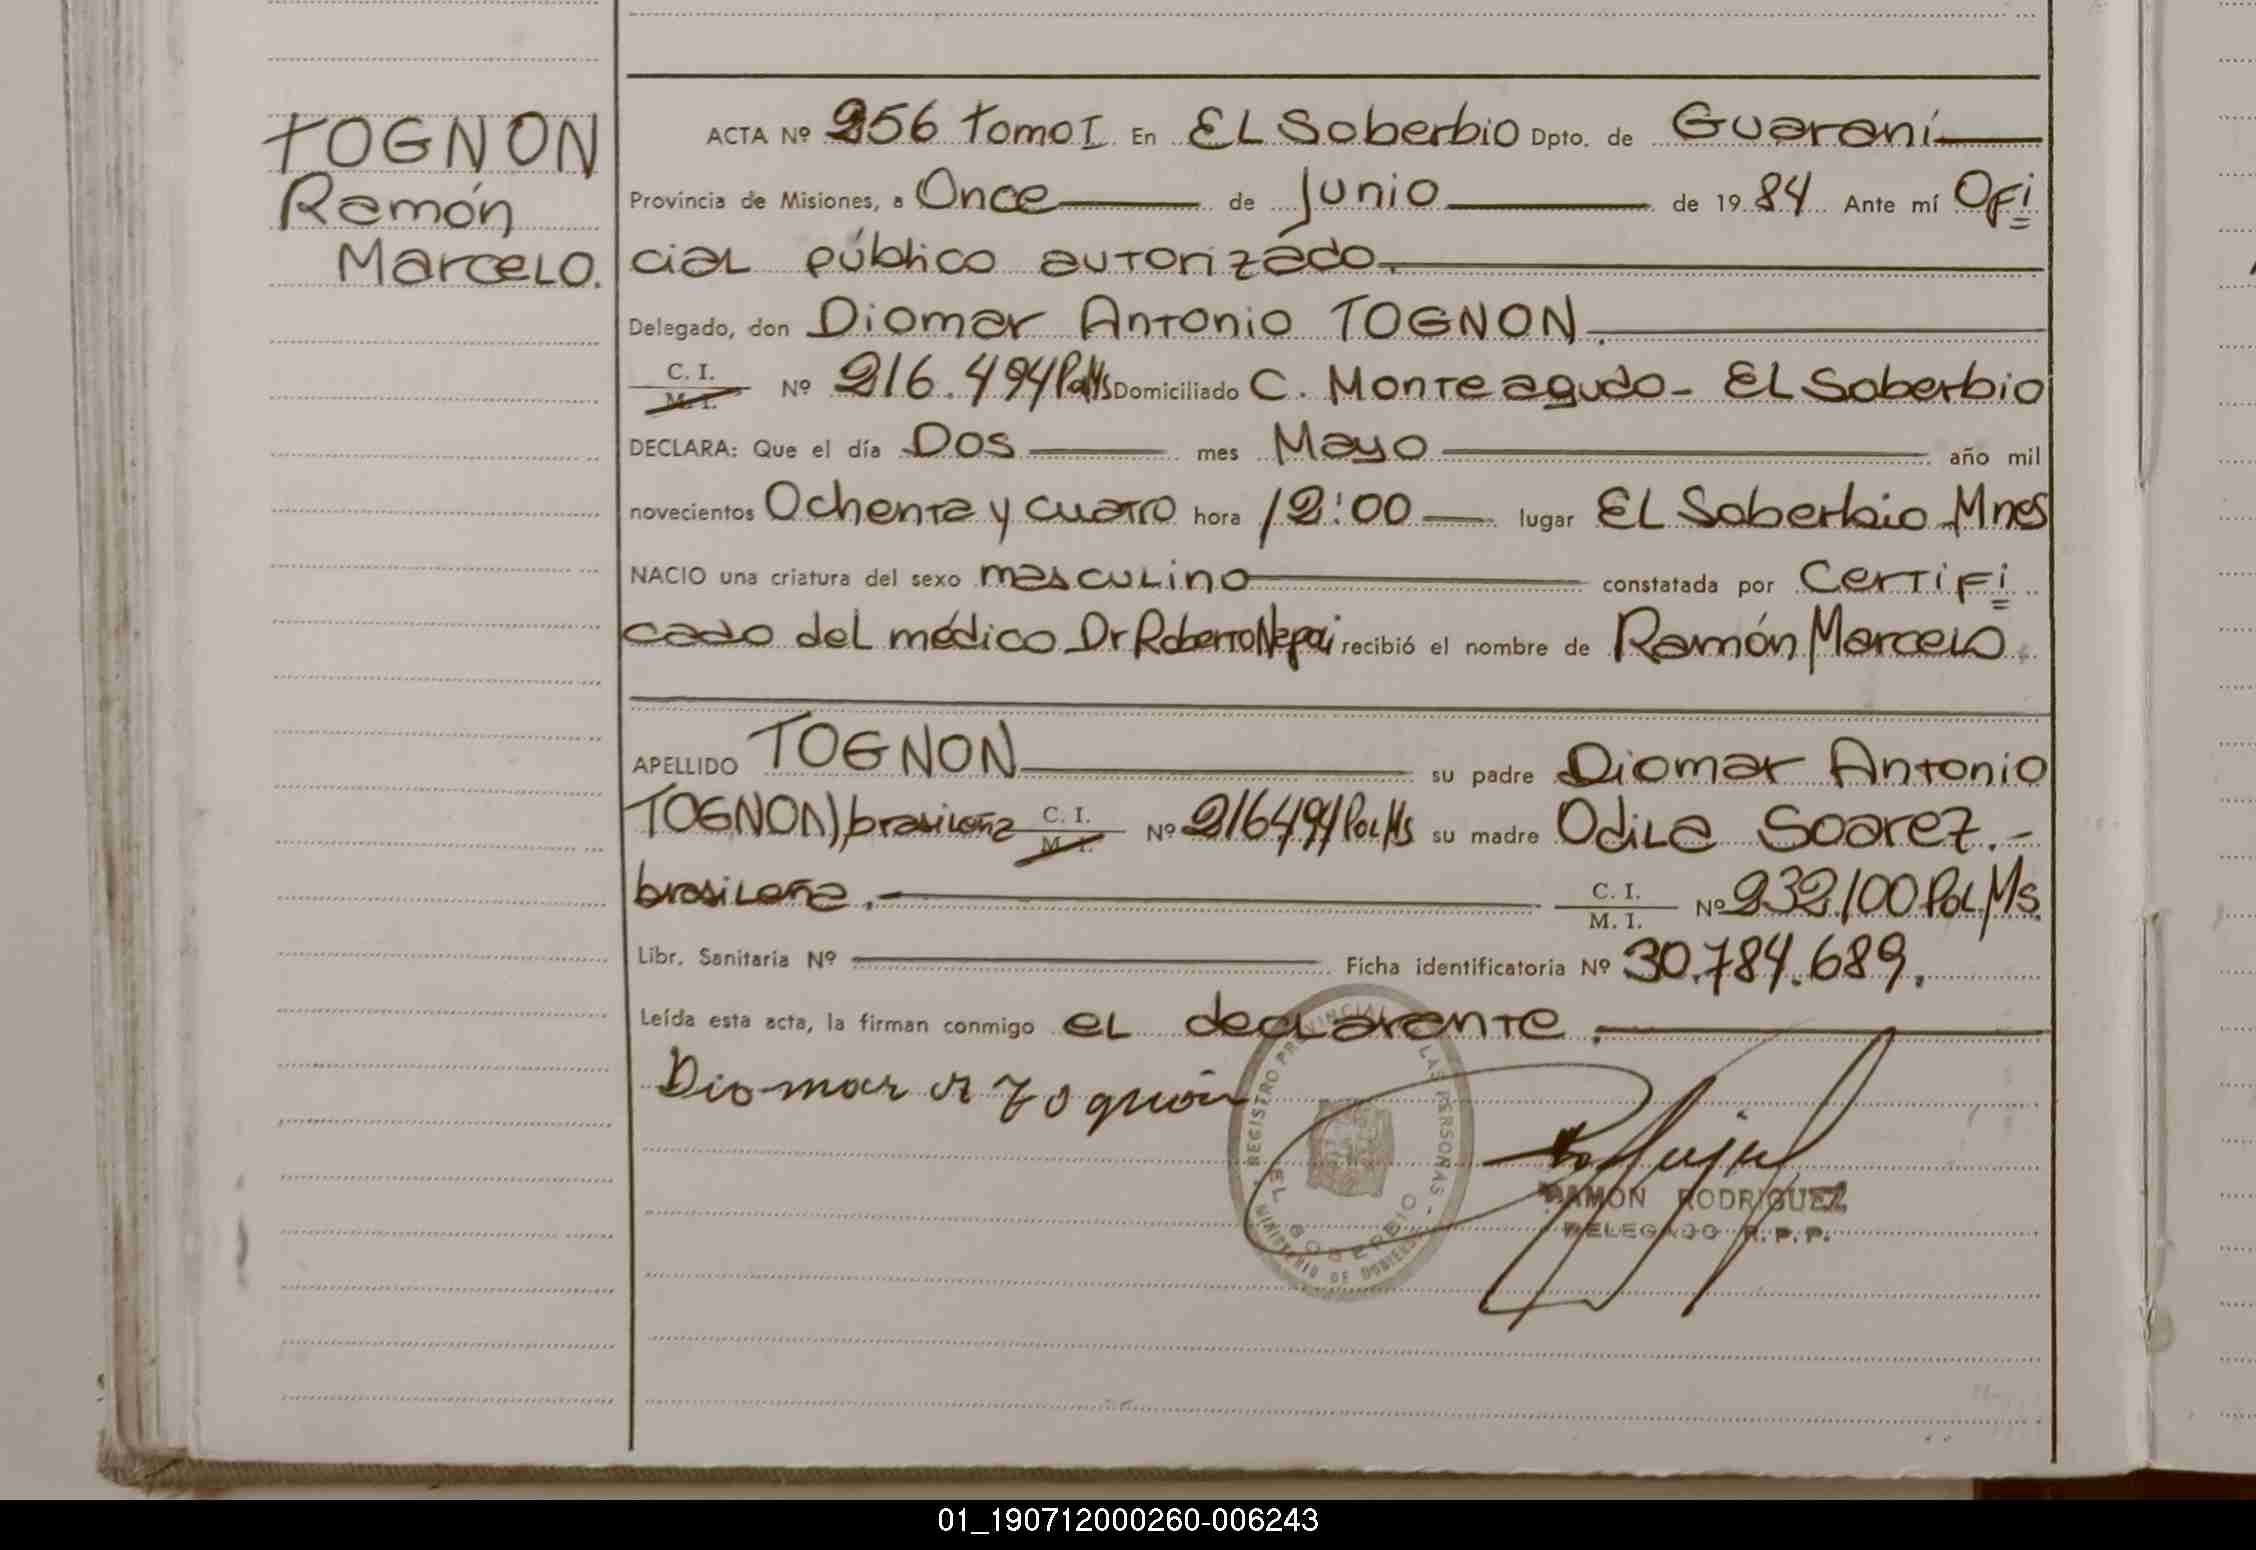 TOGNON
Ramón
Marcelo.
ACTA Nº 256 Tomo I En El Soberbio Dpto. de Guaraní
Provincia de Misiones, a Once de Junio de 1984 Ante mí Ofi
cial público autorizado.
Delegado, don Diomar Antonio TOGNON.
C. I. M. I. Nº 216.494 Pol Ms Domiciliado C. Monteagudo - El Soberbio
DECLARA: Que el día Dos mes Mayo año mil
novecientos Ochenta y cuatro hora 12:00 lugar El Soberbio Mnes
NACIO una criatura del sexo masculino constatada por Certifi
cado del médico Dr Roberto recibió el nombre de Ramón Marcelo.
APELLIDO TOGNON su padre Diomar Antonio
TOGNON, brasileña C. I. M. I. Nº 216494 Pol Ms su madre Odila Soarez. -
brasileña. - C. I. M. I. Nº 232100 Pol. Ms.
Libr. Sanitaria Nº Ficha identificatoria Nº 30.784.689.
Leída esta acta, la firman conmigo el declarante.
Diomar A Tognon
REGISTRO PROVINCIAL LAS PERSONAS
EL SOBERBIO
MINISTERIO DE GOBIERNO
RAMON RODRIGUEZ
DELEGADO R. P. P.
01_190712000260-006243